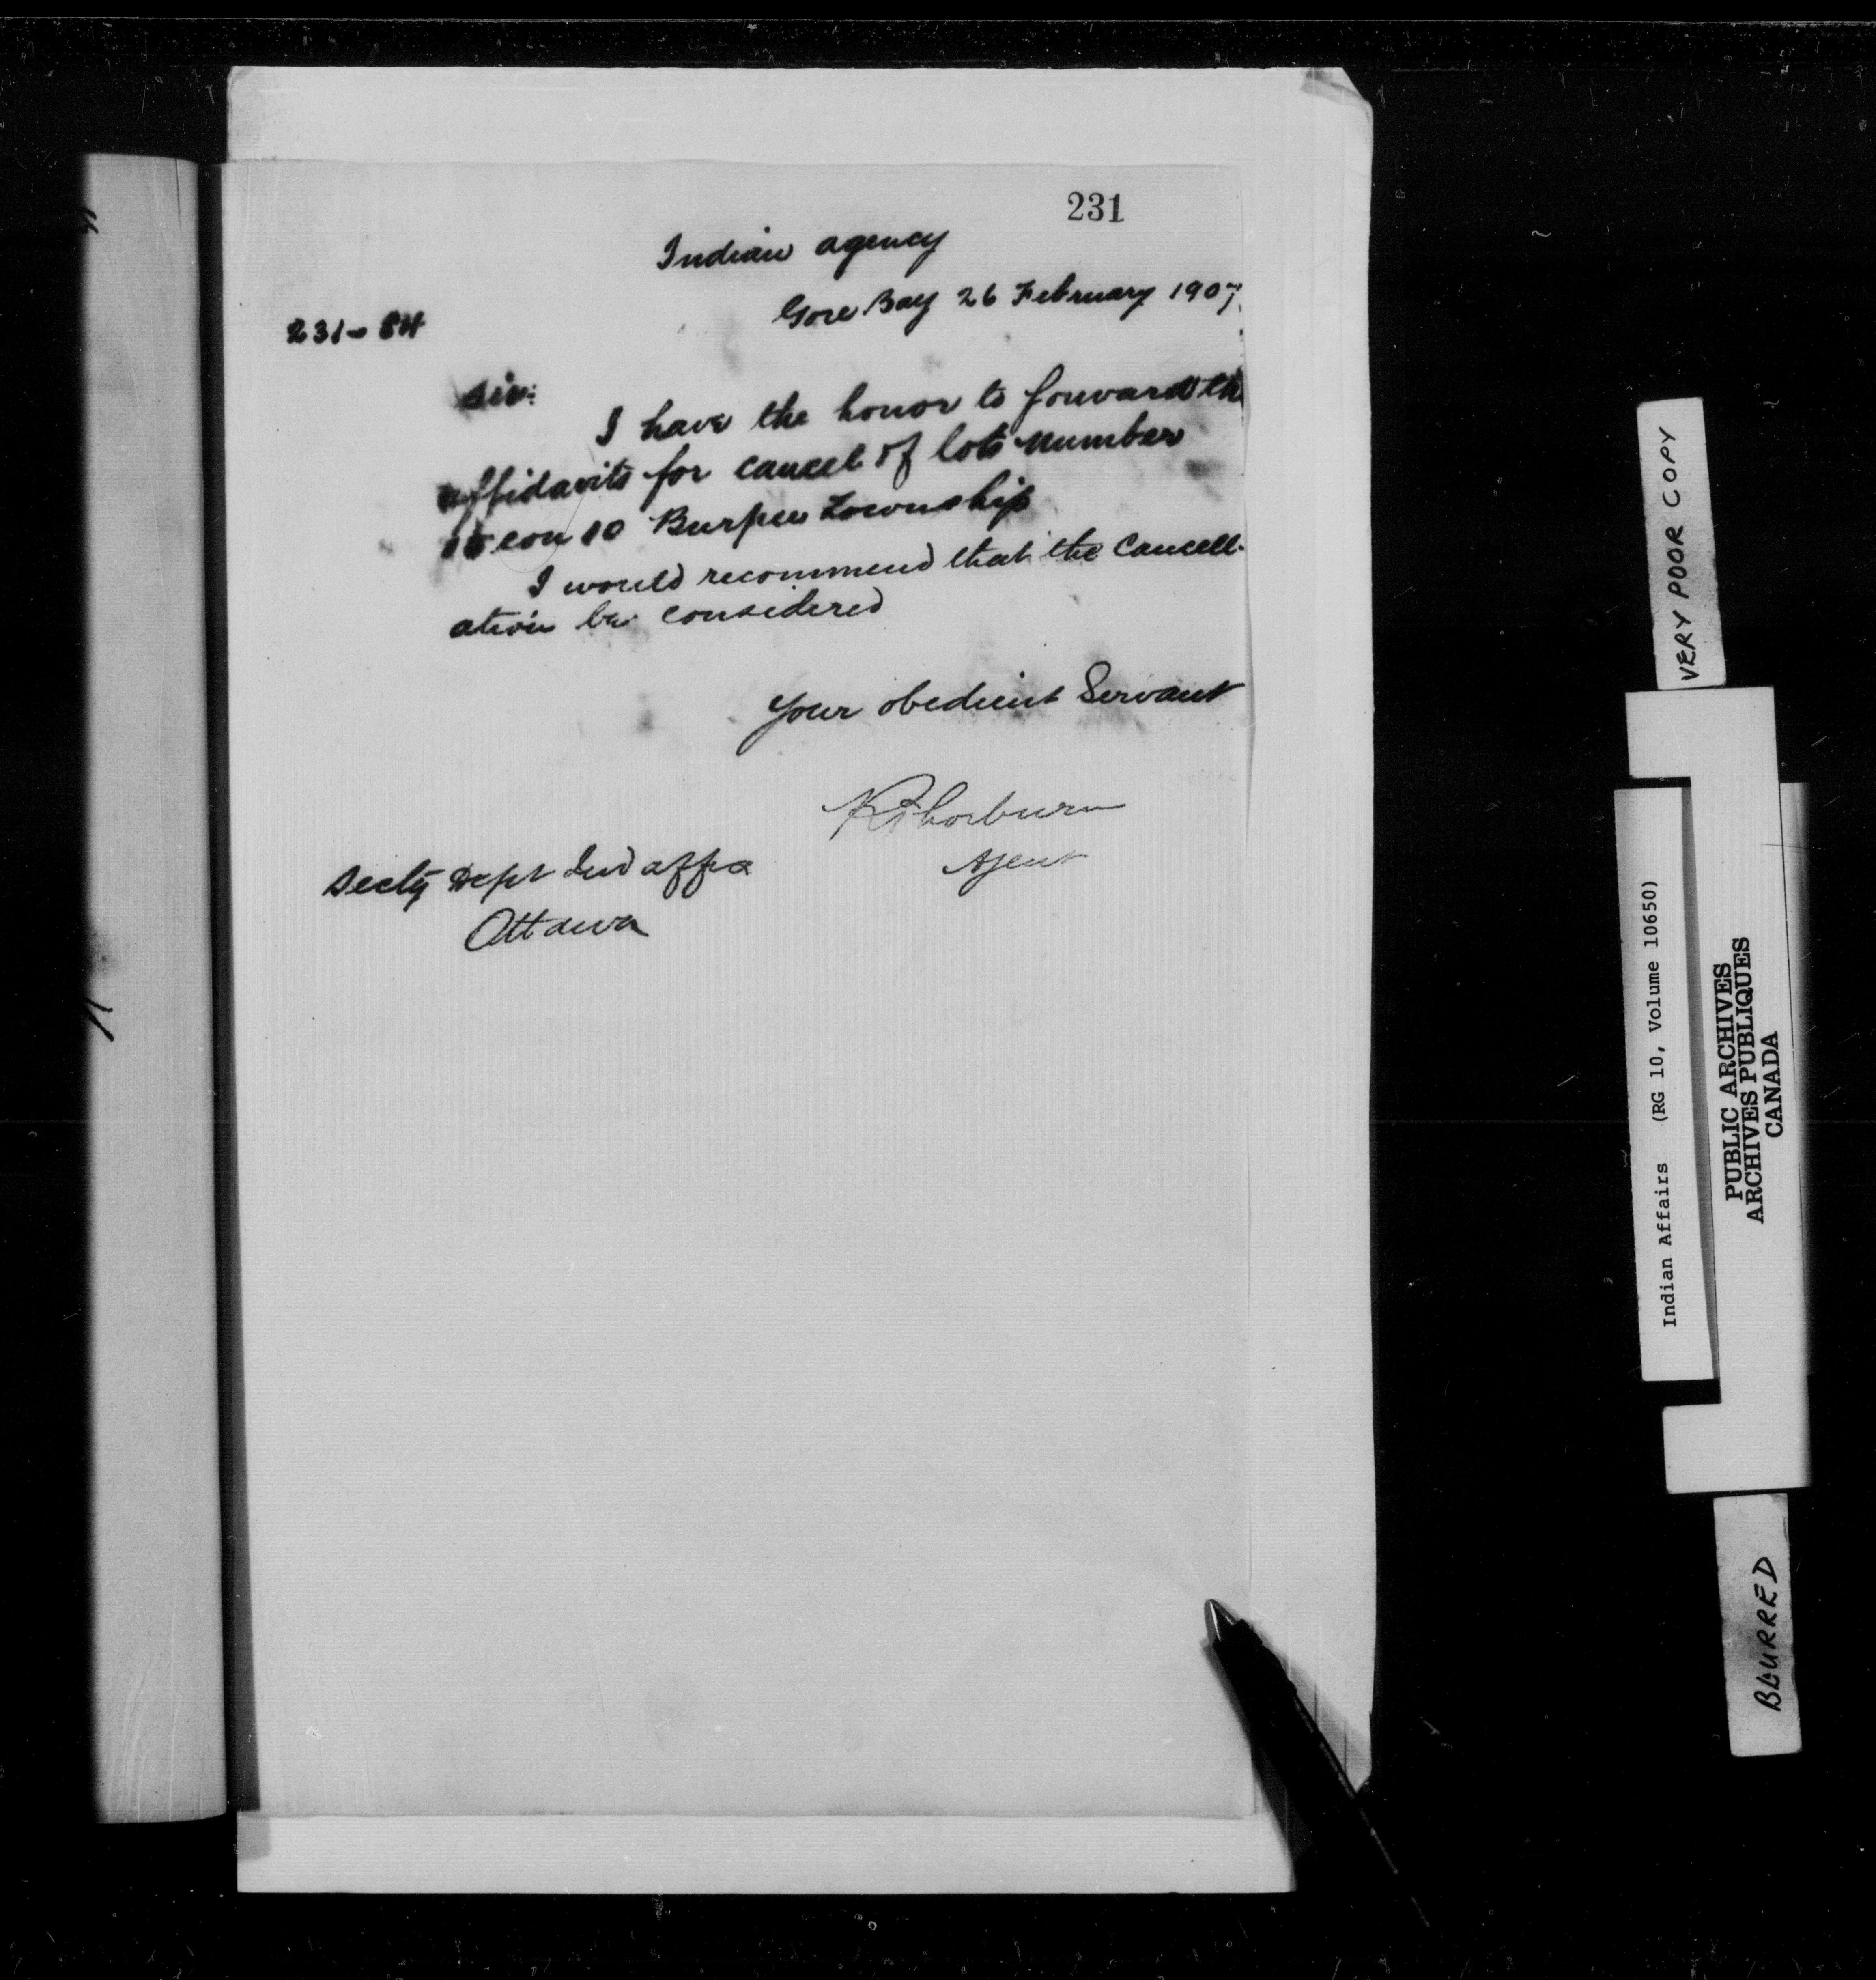 231
Indian agency
Gore Bay 26 February 1907
231-84
Sir:
I have the honor to forward th
affidavits for cancel of lots number
15 con 10 Burpee Township
I would recommend that the Cancell-
ation be considered
Your obedient Servant
R Thorburn
Agent
Secty Dept Ind affrs
Ottawa
VERY POOR COPY
Indian Affairs (RG 10, Volume 10650)
PUBLIC ARCHIVES
ARCHIVES PUBLIQUES
CANADA
BLURRED